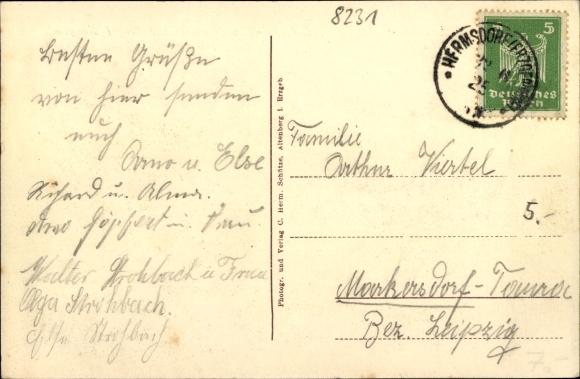 8231
Besten Grüße
von hier senden
euch
Arno u. Else
Richard u. Alma.
Arno Göpfert u. Frau
Walter Strohbach u Frau
Olga Strohbach.
Else Strohbach
Photogr. und Verlag C. Herm. Schütze, Altenberg i. Erzgeb.
HERMSDORF (ERZGEB.)
25
5
Deutsches
Reich
Familie
Arthur Viertel
5.-
Markersdorf-Taura
Bez. Leipzig
7.-